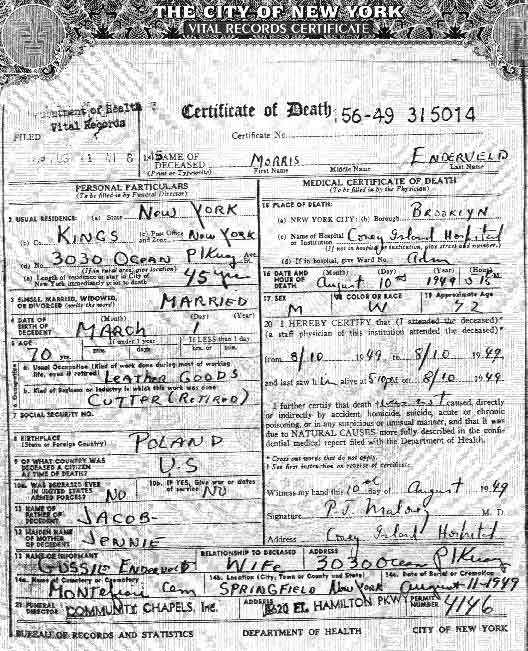 THE CITY OF NEW YORK
VITAL RECORDS CERTIFICATE
Department of Health
Vital Records
FILED
Certificate of Death
56-49 315014
Certificate No.
NAME OF DECEASED
(Print or Typewrite)
MORRIS
First Name
Middle Name
ENDERVELD
Last Name
PERSONAL PARTICULARS
(To be filled in by Funeral Director)
2 USUAL RESIDENCE: (a) State NEW YORK
(b) Co. KINGS (c) Post Office and Zone NEW YORK
(d) No. 3030 OCEAN PKwy
(If in rural area, give location)
(e) Length of residence or stay in City of New York immediately prior to death 45 yrs
3 SINGLE, MARRIED, WIDOWED, OR DIVORCED (write the word) MARRIED
4 DATE OF BIRTH OF DECEDENT (Month) (Day) (Year)
MARCH 1
5 AGE 70 yrs. If under 1 year mos. days If LESS than 1 day hrs. or min.
6 Occupation
a. Usual Occupation (Kind of work done during most of working life, even if retired)
LEATHER GOODS
b. Kind of Business or Industry in which this work was done
CUTTER (RETIRED)
7 SOCIAL SECURITY NO.
8 BIRTHPLACE (State or Foreign Country) POLAND
9 OF WHAT COUNTRY WAS DECEASED A CITIZEN AT TIME OF DEATH? US
10a. WAS DECEASED EVER IN UNITED STATES ARMED FORCES? NO
10b. IF YES, Give war or dates of service NO
11 NAME OF FATHER OF DECEDENT JACOB
12 MAIDEN NAME OF MOTHER OF DECEDENT JENNIE
MEDICAL CERTIFICATE OF DEATH
(To be filled in by the Physician)
15 PLACE OF DEATH:
(a) NEW YORK CITY: (b) Borough BROOKLYN
(c) Name of Hospital or Institution Coney Island Hospital
(If not in hospital or institution, give street and number.)
(d) If in hospital, give Ward No. Adm
16 DATE AND HOUR OF DEATH (Month) (Day) (Year) (Hour)
August 10 1949
17 SEX M
18 COLOR OR RACE W
19 Approximate Age
20 I HEREBY CERTIFY that (I attended the deceased)*
(a staff physician of this institution attended the deceased)*
from 8/10 1949 to 8/10 1949
and last saw him alive at 510 pm on 8/10 1949
I further certify that death was not caused, directly
or indirectly by accident, homicide, suicide, acute or chronic
poisoning, or in any suspicious or unusual manner, and that it was
due to NATURAL CAUSES more fully described in the confidential
medical report filed with the Department of Health.
* Cross out words that do not apply.
* See first instruction on reverse of certificate.
Witness my hand this 10 day of August 1949
Signature M. D.
Address Coney Island Hospital
13 NAME OF INFORMANT GUSSIE ENDERVELD
RELATIONSHIP TO DECEASED WIFE
ADDRESS 3030 Ocean PKwy
14a. Name of Cemetery or Crematory MONTEFIORE Cem
14b. Location (City, Town or County and State) SPRINGFIELD New York
14c. Date of Burial or Cremation August 11-1949
21 FUNERAL DIRECTOR COMMUNITY CHAPELS, Inc.
ADDRESS HAMILTON PKWY
PERMIT NUMBER 4146
BUREAU OF RECORDS AND STATISTICS
DEPARTMENT OF HEALTH
CITY OF NEW YORK